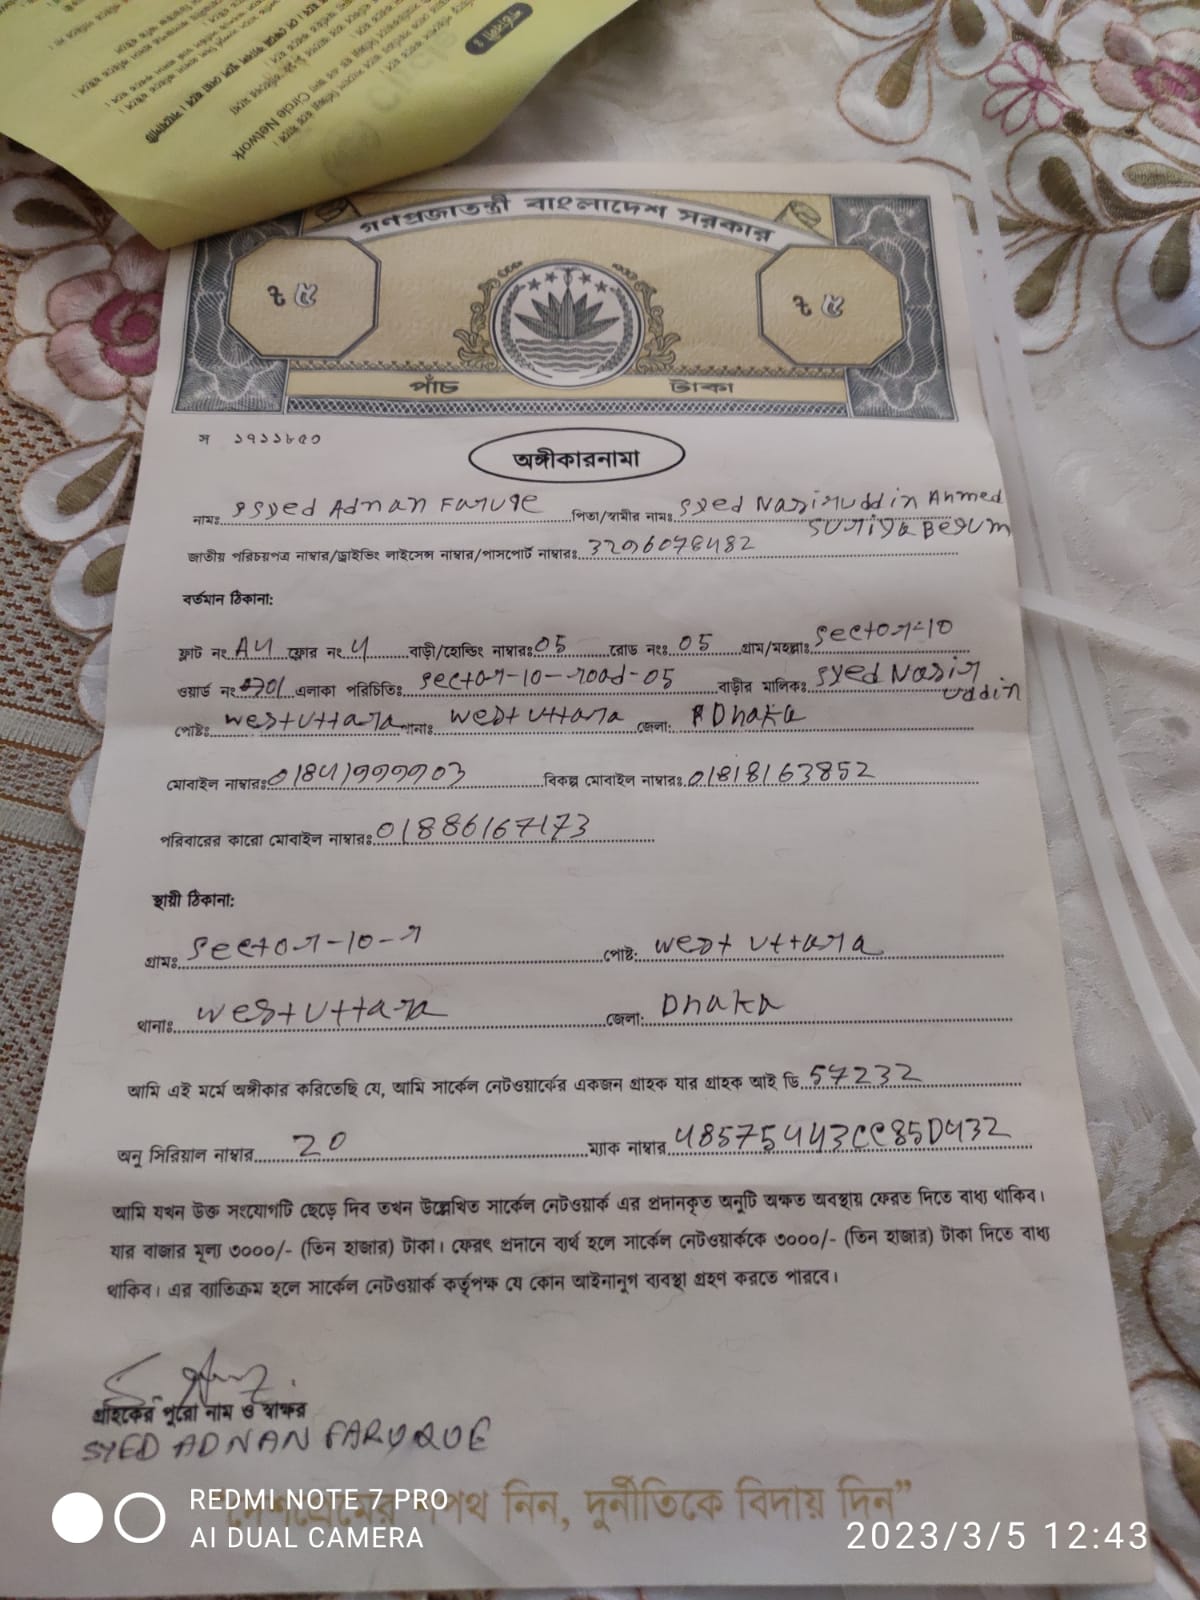 Circle Network
গনপ্রজাতন্ত্রী বাংলাদেশ সরকার
ট ৫ ট ৫
পাঁচ টাকা
স ১৭১১৮৫০
অঙ্গীকারনামা
নামঃ Syed Adnan Faruqe পিতা/স্বামীর নামঃ Syed Nasiruddin Ahmed
Suriya Begum
জাতীয় পরিচয়পত্র নাম্বার/ড্রাইভিং লাইসেন্স নাম্বার/পাসপোর্ট নাম্বারঃ 3296078482
বর্তমান ঠিকানা:
ফ্লাট নং A4 ফ্লোর নং 4 বাড়ী/হোল্ডিং নাম্বারঃ 05 রোড নংঃ 05 গ্রাম/মহল্লাঃ Sector-10
ওয়ার্ড নং 01 এলাকা পরিচিতিঃ Sector-10-road-05 বাড়ীর মালিকঃ Syed Nasir
uddin
পোষ্টঃ West Uttara থানাঃ West Uttara জেলা: Dhaka
মোবাইল নাম্বারঃ 01841999903 বিকল্প মোবাইল নাম্বারঃ 01818163852
পরিবারের কারো মোবাইল নাম্বারঃ 01886167173
স্থায়ী ঠিকানা:
গ্রামঃ Sector-10-r পোষ্ট: West Uttara
থানাঃ West Uttara জেলা: Dhaka
আমি এই মর্মে অঙ্গীকার করিতেছি যে, আমি সার্কেল নেটওয়ার্কের একজন গ্রাহক যার গ্রাহক আই ডি 57232
অনু সিরিয়াল নাম্বার 20 ম্যাক নাম্বার 48575443CC85D432
আমি যখন উক্ত সংযোগটি ছেড়ে দিব তখন উল্লেখিত সার্কেল নেটওয়ার্ক এর প্রদানকৃত অনুটি অক্ষত অবস্থায় ফেরত দিতে বাধ্য থাকিব।
যার বাজার মূল্য ৩০০০/- (তিন হাজার) টাকা। ফেরৎ প্রদানে ব্যর্থ হলে সার্কেল নেটওয়ার্ককে ৩০০০/- (তিন হাজার) টাকা দিতে বাধ্য
থাকিব। এর ব্যতিক্রম হলে সার্কেল নেটওয়ার্ক কর্তৃপক্ষ যে কোন আইনানুগ ব্যবস্থা গ্রহণ করতে পারবে।
গ্রাহকের পুরো নাম ও স্বাক্ষর
SYED ADNAN FARUQUE
শপথ নিন, দুর্নীতিকে বিদায় দিন”
REDMI NOTE 7 PRO
AI DUAL CAMERA
2023/3/5 12:43